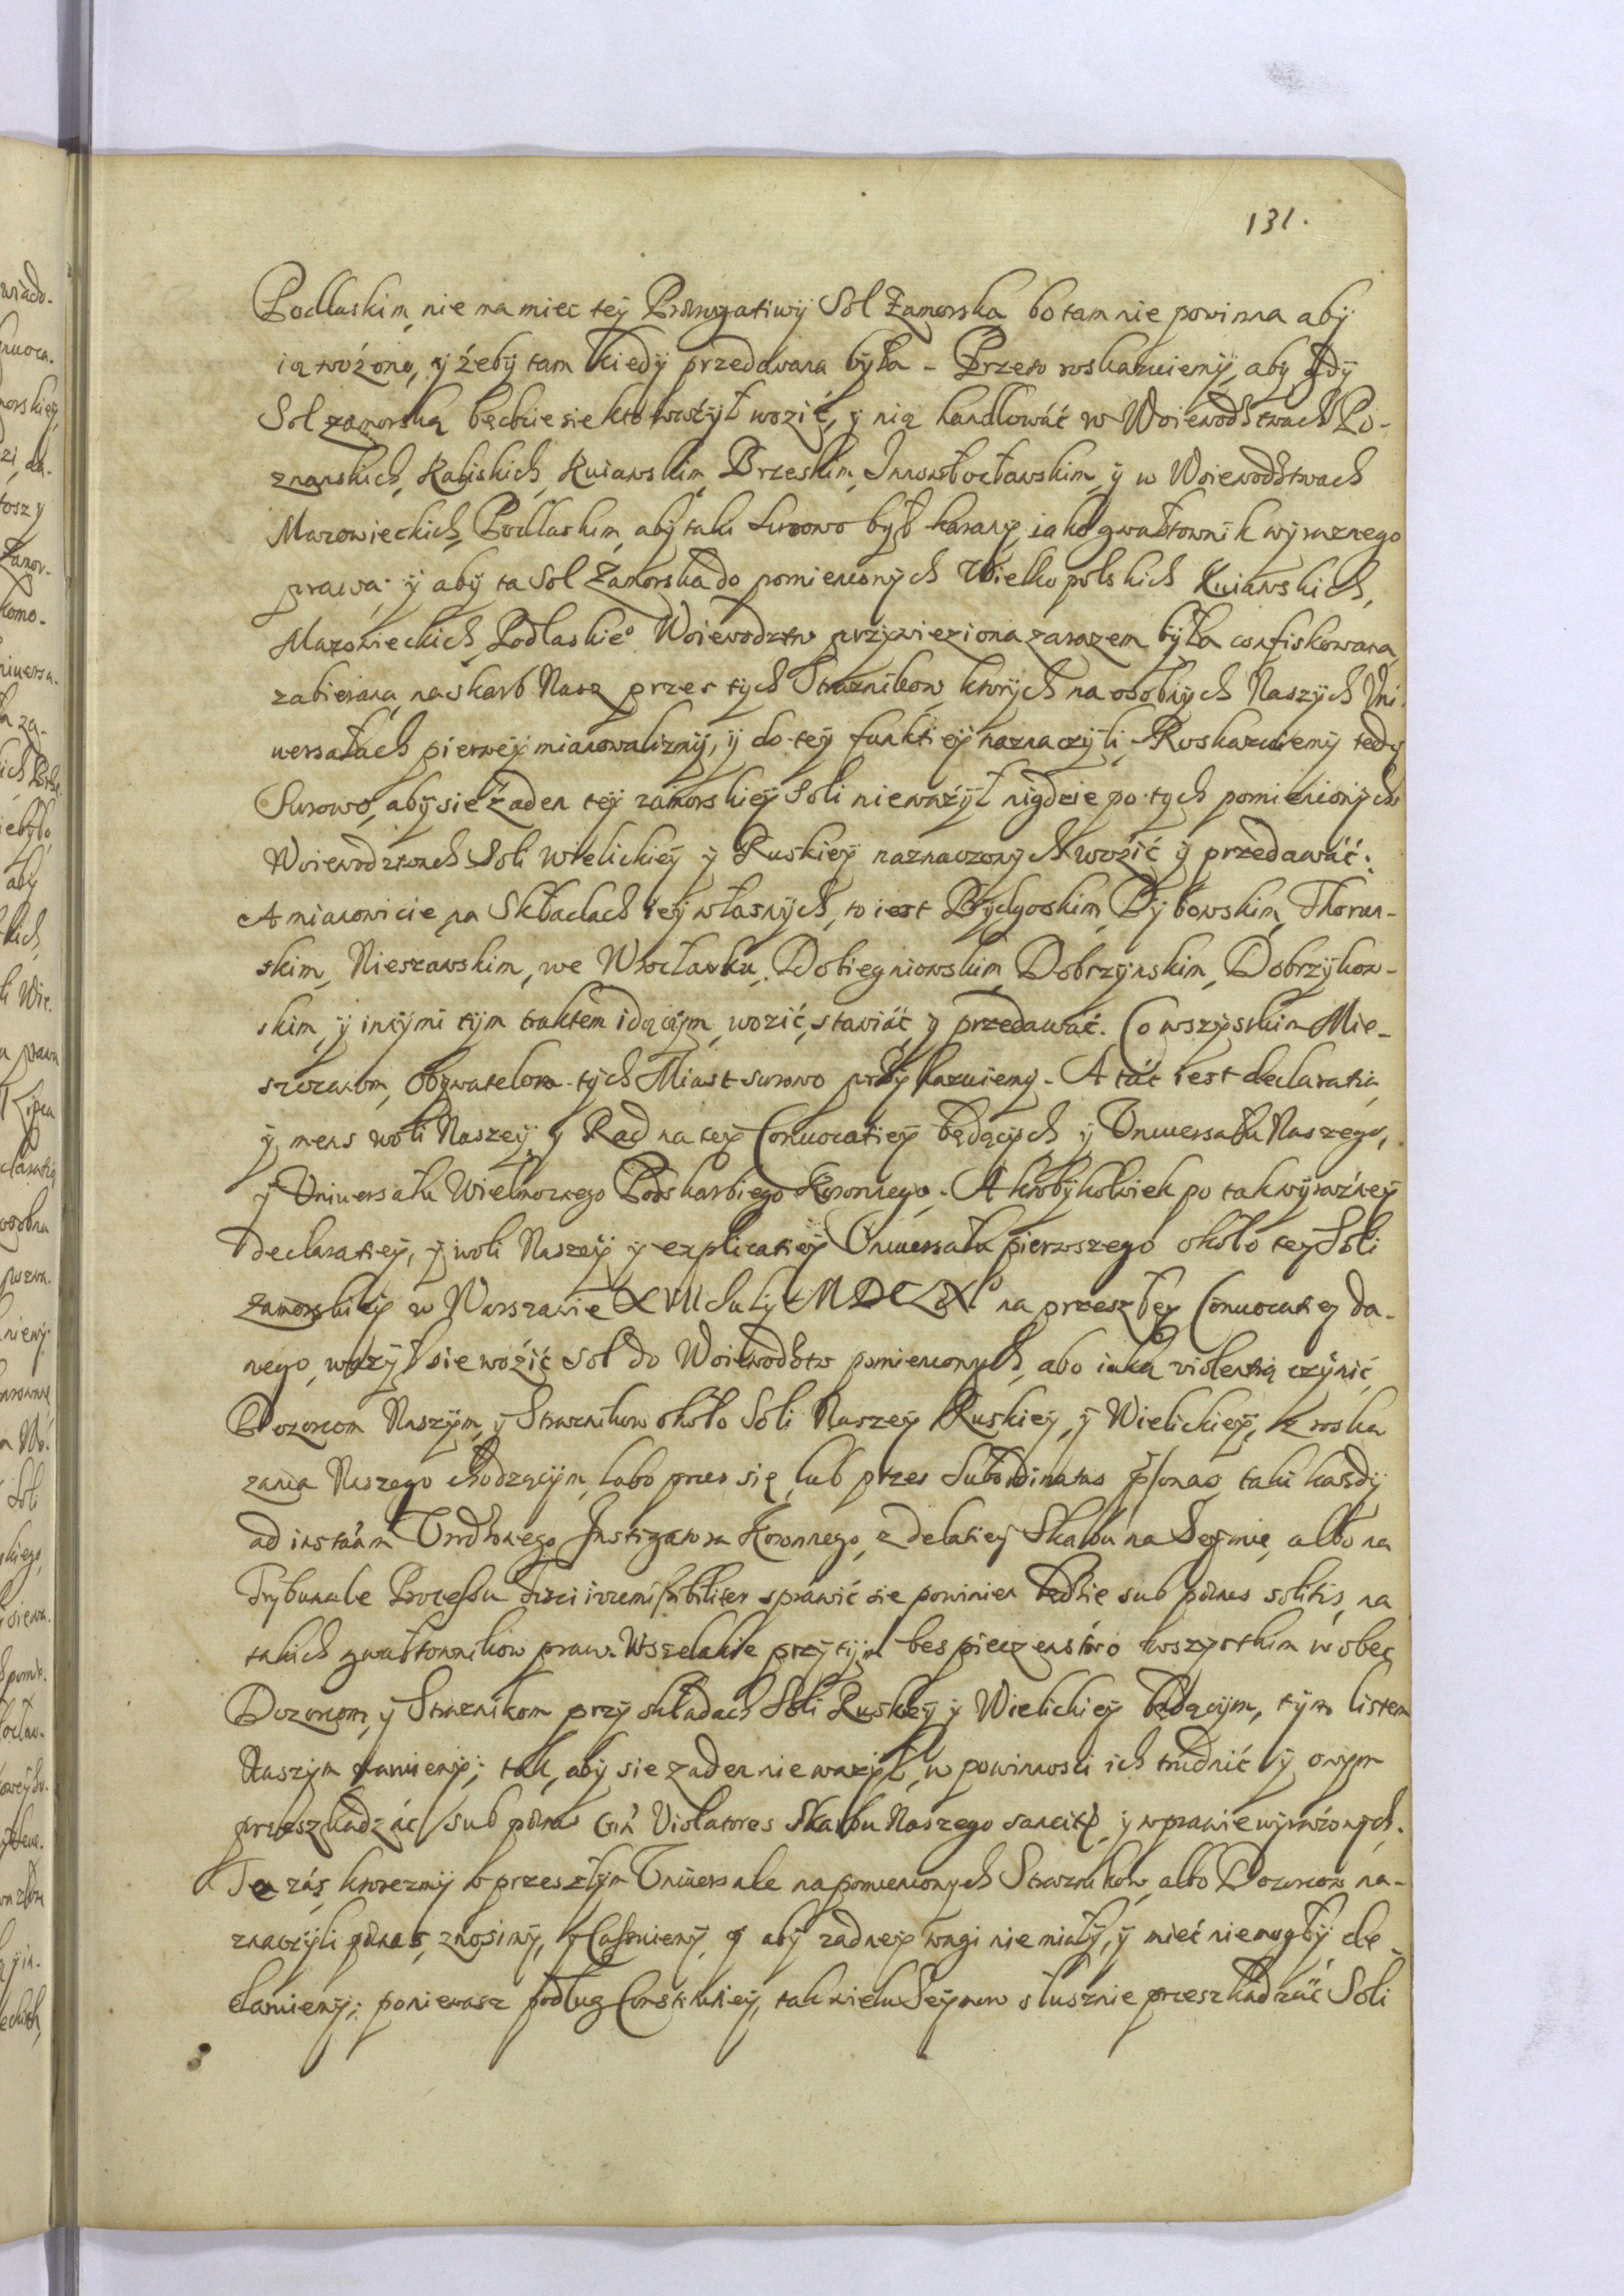 131.
Podlaskim, nie ma miec tey Prerogatiwy Sol Zamorska, bo tam nie powinna aby
ią wożono, y żeby tam kiedy przedawana była - Przeto roskazuiemy, aby gdy
Sol zamorską będzie sie kto ważył wozić, y nią handlowáć w Woiewodstwach Po-
znanskich, Kaliskich, Kuiawskim, Brzeskim, Inowłocławskim, y w Woiewodstwach
Mazowieckich, Podlaskim, aby taki surowo był karany, iako gwałtownik wyraznego
prawa. y aby ta Sol Zamorska do pomienionych Wielkopolskich, Kuiawskich,
Mazowieckich, Podlaskie° Woiewodztw przywieziona zarazem była confiskowana,
zabierana na skarb Nasz przez tych Straznikow, ktorych na osobnych Naszych Uni-
wersałach pierwey mianowalizmy, y do tey funktiey naznaczyli, Roskazuiemy tedy
Surowo, aby sie żaden tey zámorskiey Soli nieważył nigdzie po tych pomienionych
Woiewodztwach Soli Wielickiey y Ruskiey naznaczonych wozić y przedawáć.
A mianowicie na Składach iey własnych, to iest Bydgoskim, Dybowskim, Thorun-
skim, Nieszawskim, we Włocławku, Dobiegniowskim, Dobrzynskim, Dobrzykow-
skim, y inszymi tym traktem idącym, wozić, stawiáć y przedawáć. Co wszyskim Mie-
szczanom, Obywatelom tych Miast surowo przykazuiemy. A táć iest declaratia,
y mens woli Naszey, y Rad na tey Conuocatiey będących, y Uniuersału Naszego,
y Uniuersału Wielmoznego Podskarbiego Koronnego. A ktobykolwiek po tak wyraźney
declaratiey, y woli Naszey y explicatiey Uniuersału pierwszego około tey Soli
zamorskiey w Warszawie XVII July MDC na przeszłey Conuocatiey da-
nego, ważył sie wozić sol do Woiewodztw pomienionych, abo iaką violentią czynić
Dozorcom Naszym, y Straznikow około Soli Naszey Ruskiey, y Wielickiey, z roska
zania Naszego chodzącym, labo przez się, lub przez Subordinatas psonas, taki każdy
ad instám Urodzonego Instigatora Koronnego, z delatiey Skarbu na Seymie, albo na
Trybunale Processu fisci irremissibiliter sprawić sie powinien będzie sub pænas solitis, na
takich gwałtownikow praw. Wszelakie przytym bespieczenstwo wszystkim wobec
Dozorcom, y Straznikom przy składach Soli Ruskiey y Wielickiey będącym, tym listem
Naszym daniemy; tak, aby sie zaden nie ważył, w powinnosci ich trudnić y onym
przeszkadzác sub pænas Violatores Skarbu Naszego sancitę, y w prawie wyrażonych.
Te záś, ktorezmy w przeszłym Uniuersale na pomienionych Straznikow, albo Dozorcow na-
znaczyli pænas, znosimy, y Cassuiemy, y aby zadney wagi nie miały, y mieć nie mogły, de-
clariemy; poniewasz podług Constitutiey, tak wielu Seymow słusznie przeszkadzáć Soli